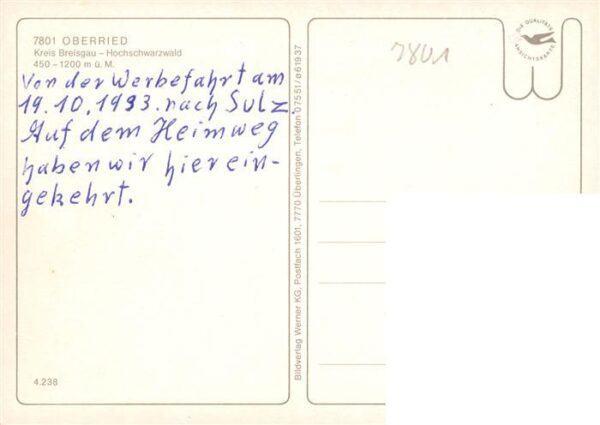 7801 OBERRIED
Kreis Breisgau – Hochschwarzwald
450 – 1200 m ü. M.
Von der Werbefahrt am
19.10.1993. nach Sulz.
Auf dem Heimweg
haben wir hier ein-
gekehrt.
4.238
Bildverlag Werner KG, Postfach 1601, 7770 Überlingen, Telefon 07551/ø61937
7801
DIE QUALITÄTS
ANSICHTSKARTE